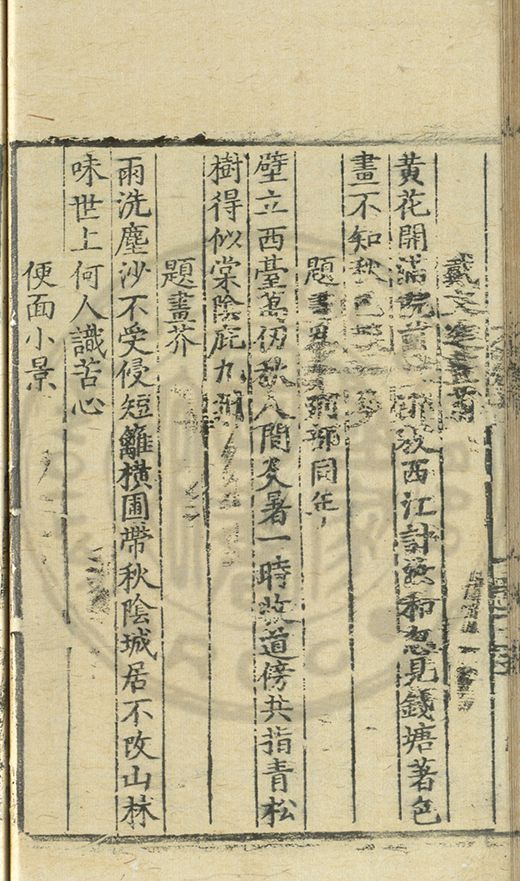 戴文進畫菊
黃花開滿院前放西江詩微和忽見錢塘著色
畫不知秋色
題畫同年
壁立西臺萬仞秋人間炎暑一時收道傍共指青松
樹得似棠陰庇九洲
題畫芥
雨洗塵沙不受侵短籬橫圃帶秋陰城居不改山林
味世上何人識苦心
便面小景